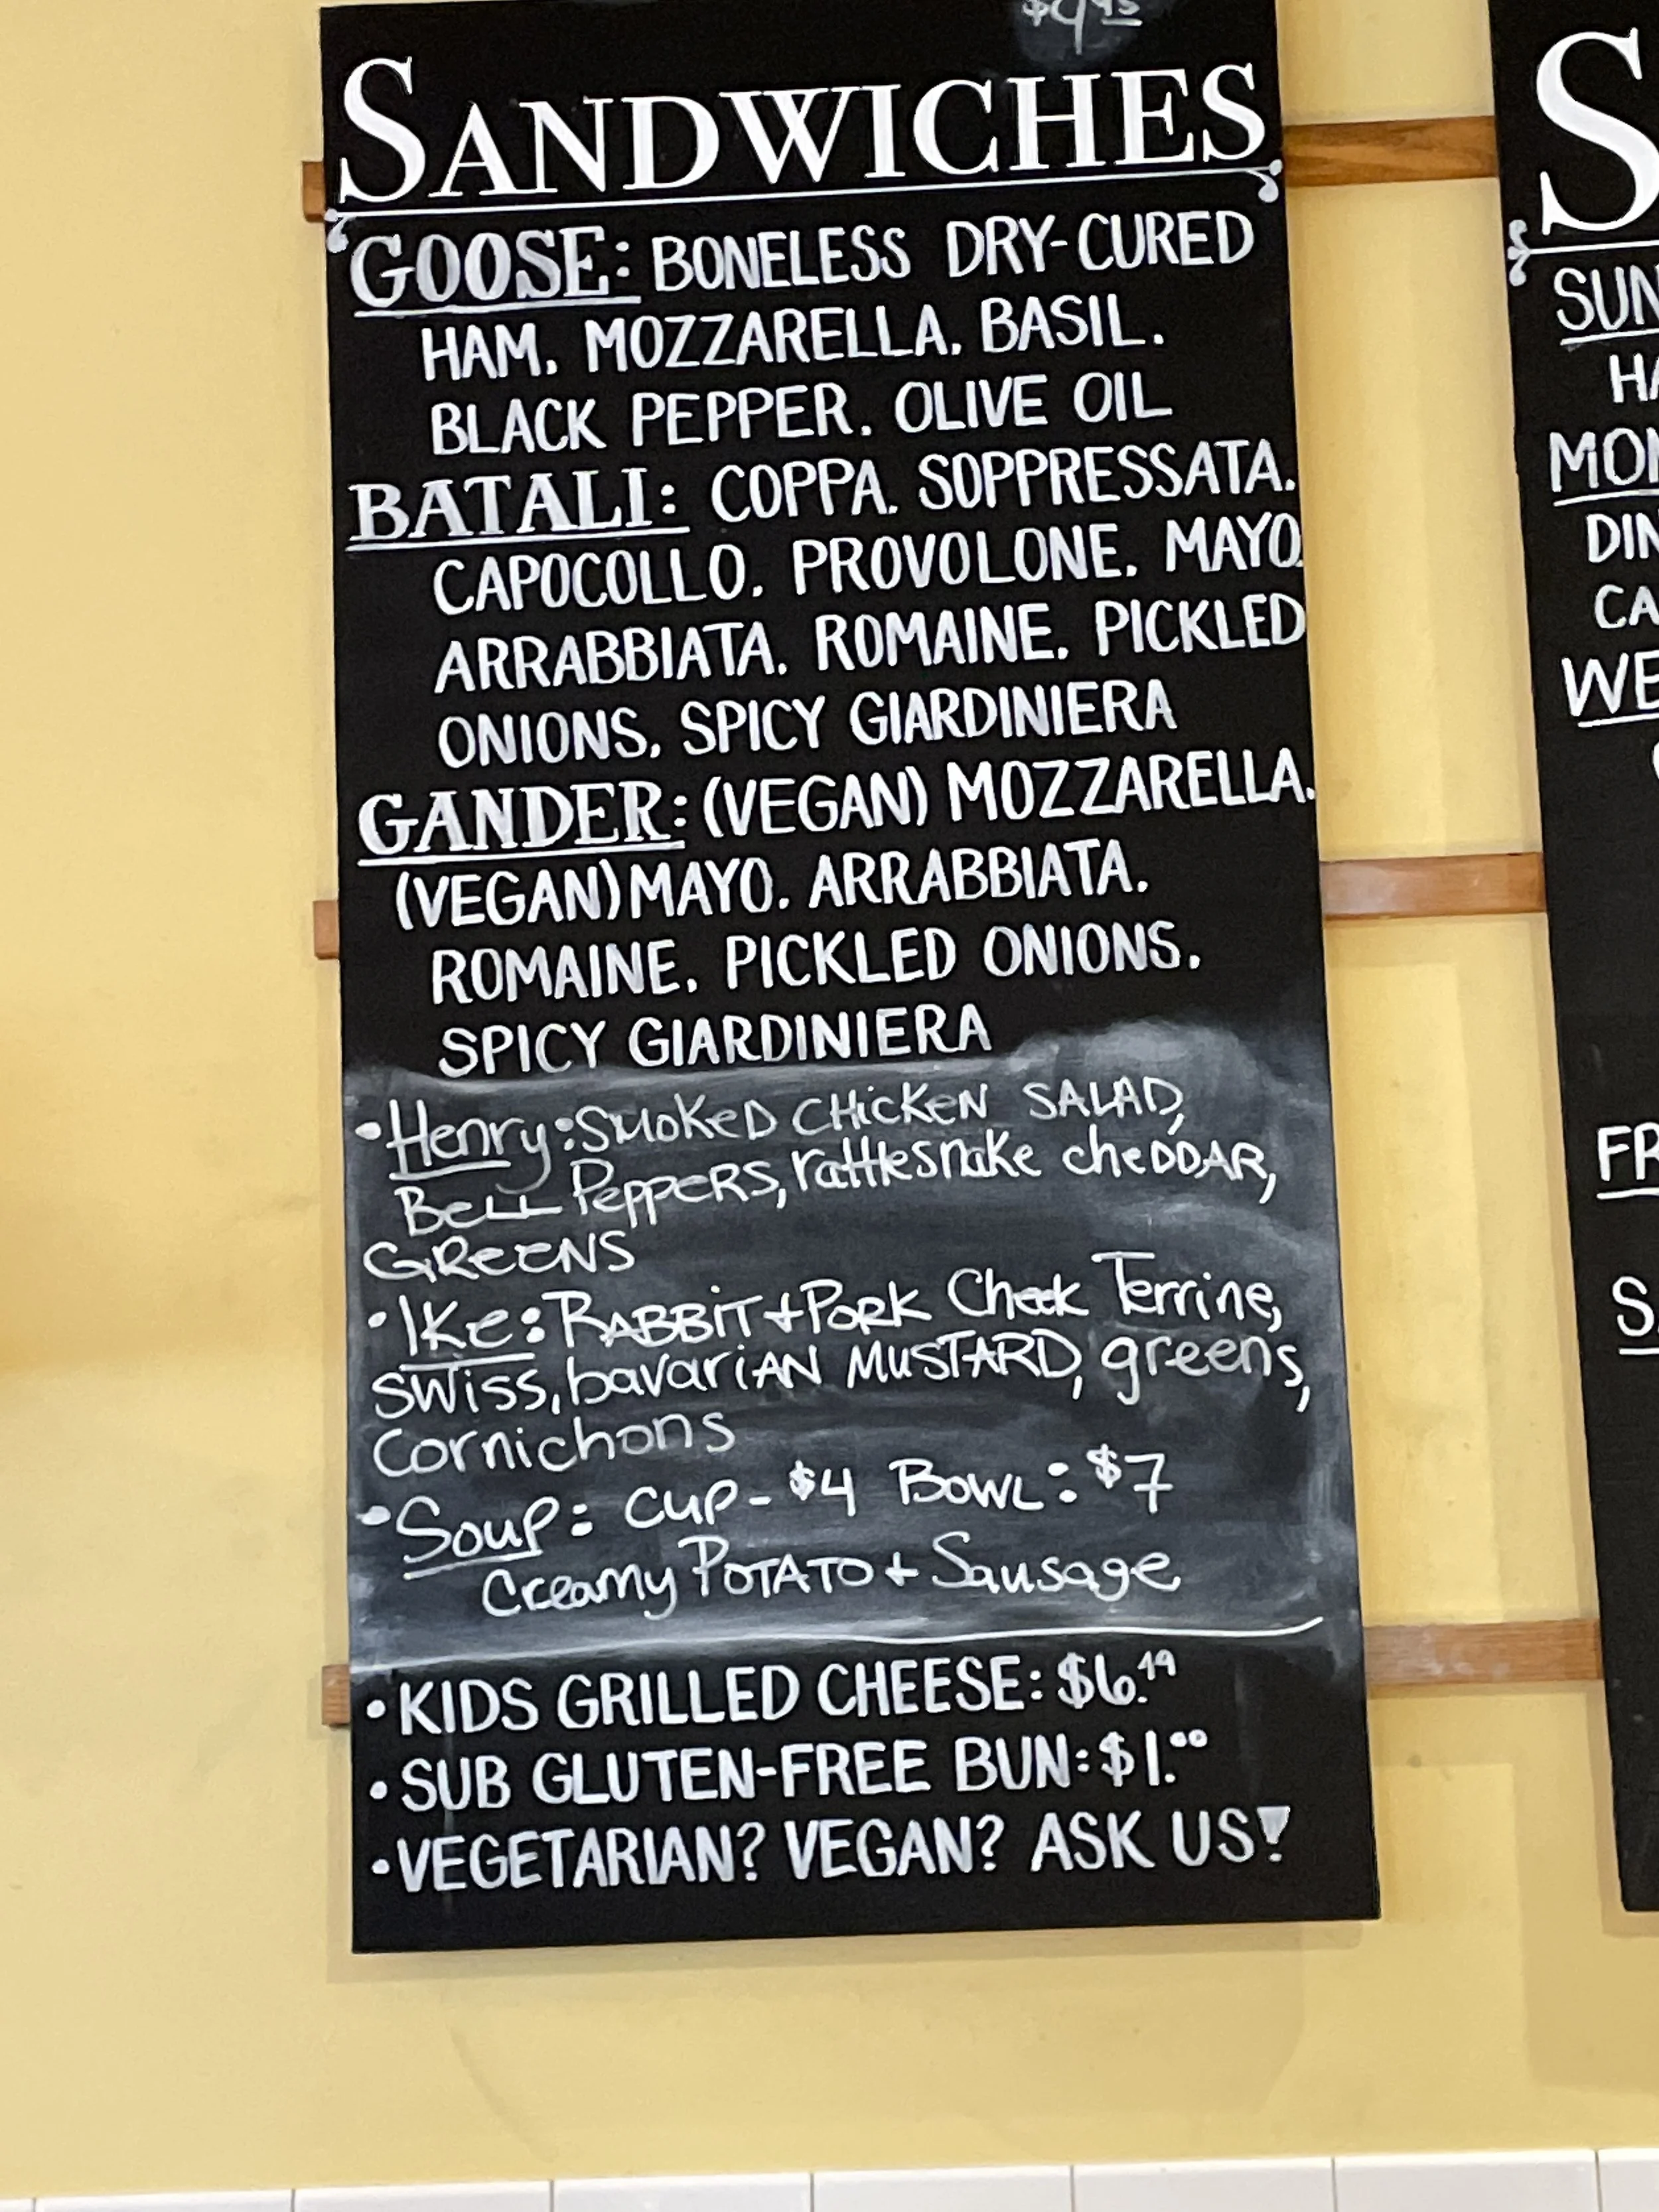 $9.95
SANDWICHES
GOOSE: BONELESS DRY-CURED
HAM. MOZZARELLA. BASIL.
BLACK PEPPER. OLIVE OIL
BATALI: COPPA. SOPPRESSATA.
CAPOCOLLO. PROVOLONE. MAYO.
ARRABBIATA. ROMAINE. PICKLED
ONIONS. SPICY GIARDINIERA
GANDER: (VEGAN) MOZZARELLA.
(VEGAN) MAYO. ARRABBIATA.
ROMAINE. PICKLED ONIONS.
SPICY GIARDINIERA
• Henry: SMOKED CHICKEN SALAD,
BELL PEPPERS, rattlesnake cheDDAR,
GREENS
• IKe: RABBIT + PORK Cheek Terrine,
SWiss, bavariAN MUSTARD, greens,
Cornichons
• Soup: CUP - $4 BOWL: $7
Creamy POTATO + Sausage
• KIDS GRILLED CHEESE: $6.49
• SUB GLUTEN-FREE BUN: $1.00
• VEGETARIAN? VEGAN? ASK US!
S
SUN
HA
MON
DIN
CA
WE
FR
SA